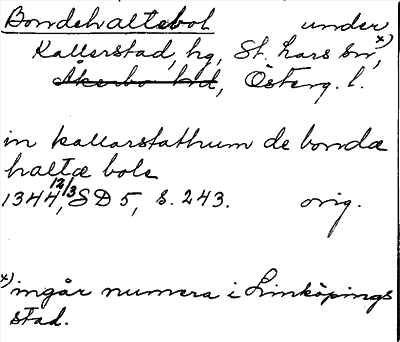 Bondehaltebol under
Kallerstad, hg, St. Lars sn, x)
Åkerbo hrd, Österg. l.
in kallarstathum de bonda
haltæ bole
1344 12/3, SD 5, s. 243. orig.
x) ingår numera i Linköpings
stad.